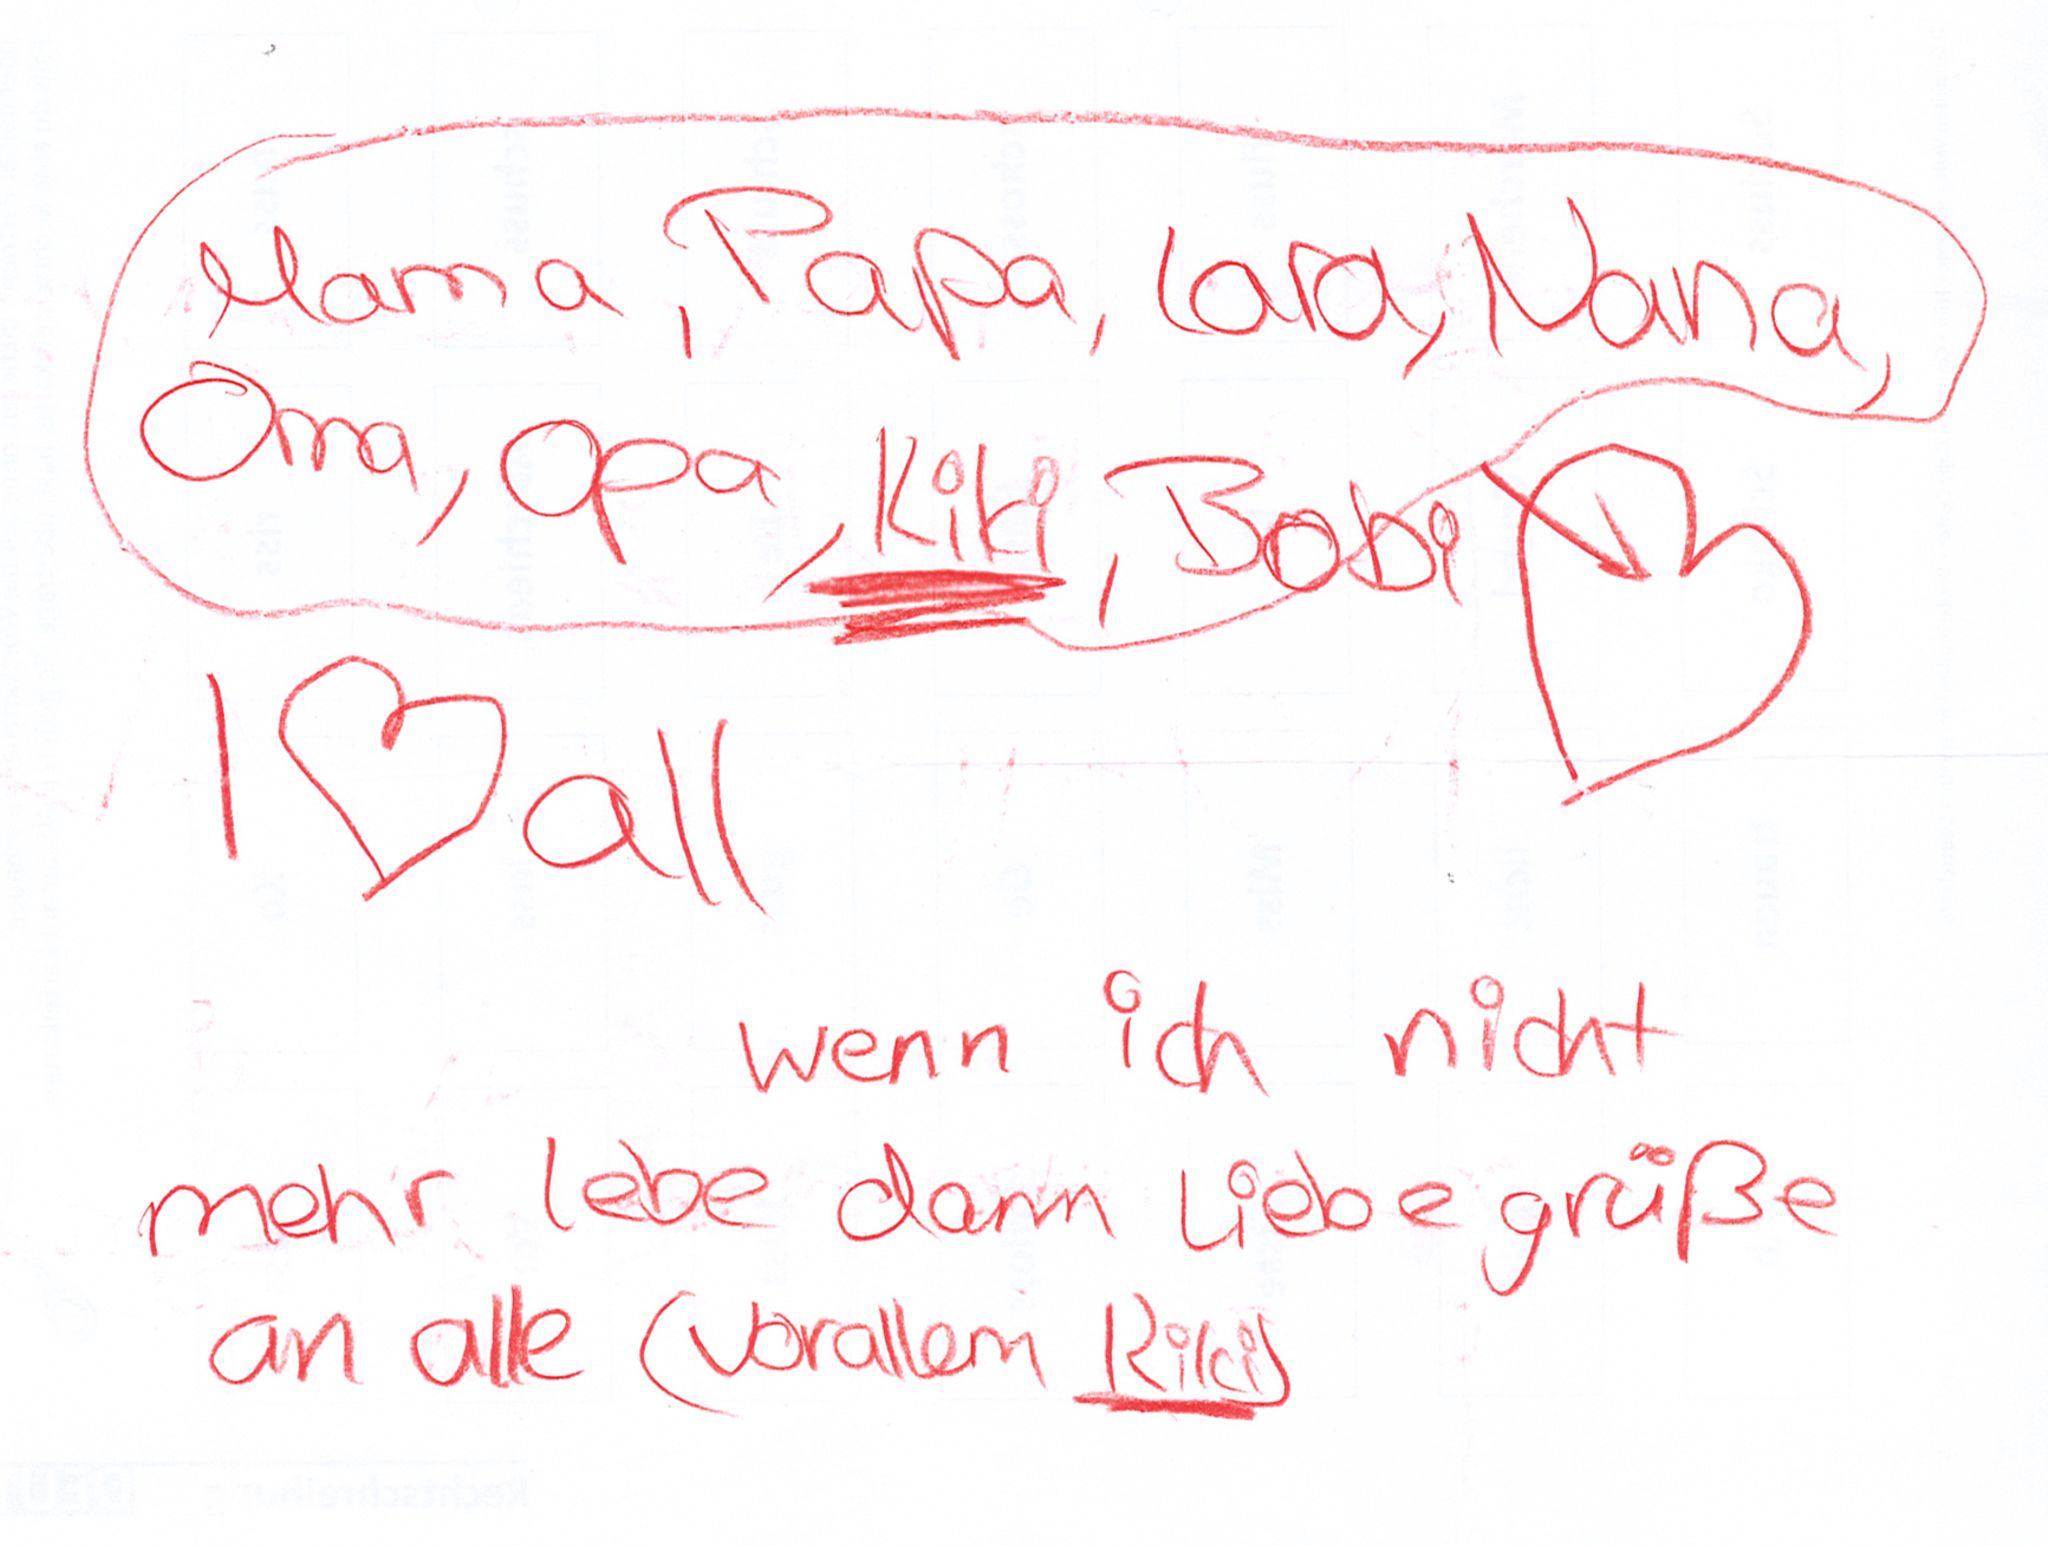 Mama, Papa, Lara, Nana,
Oma, opa, Kiki, Bobi
I ♡ all
wenn ich nicht
mehr lebe dann Liebe grüße
an alle (vorallem Kiki)
Rechtschreibung